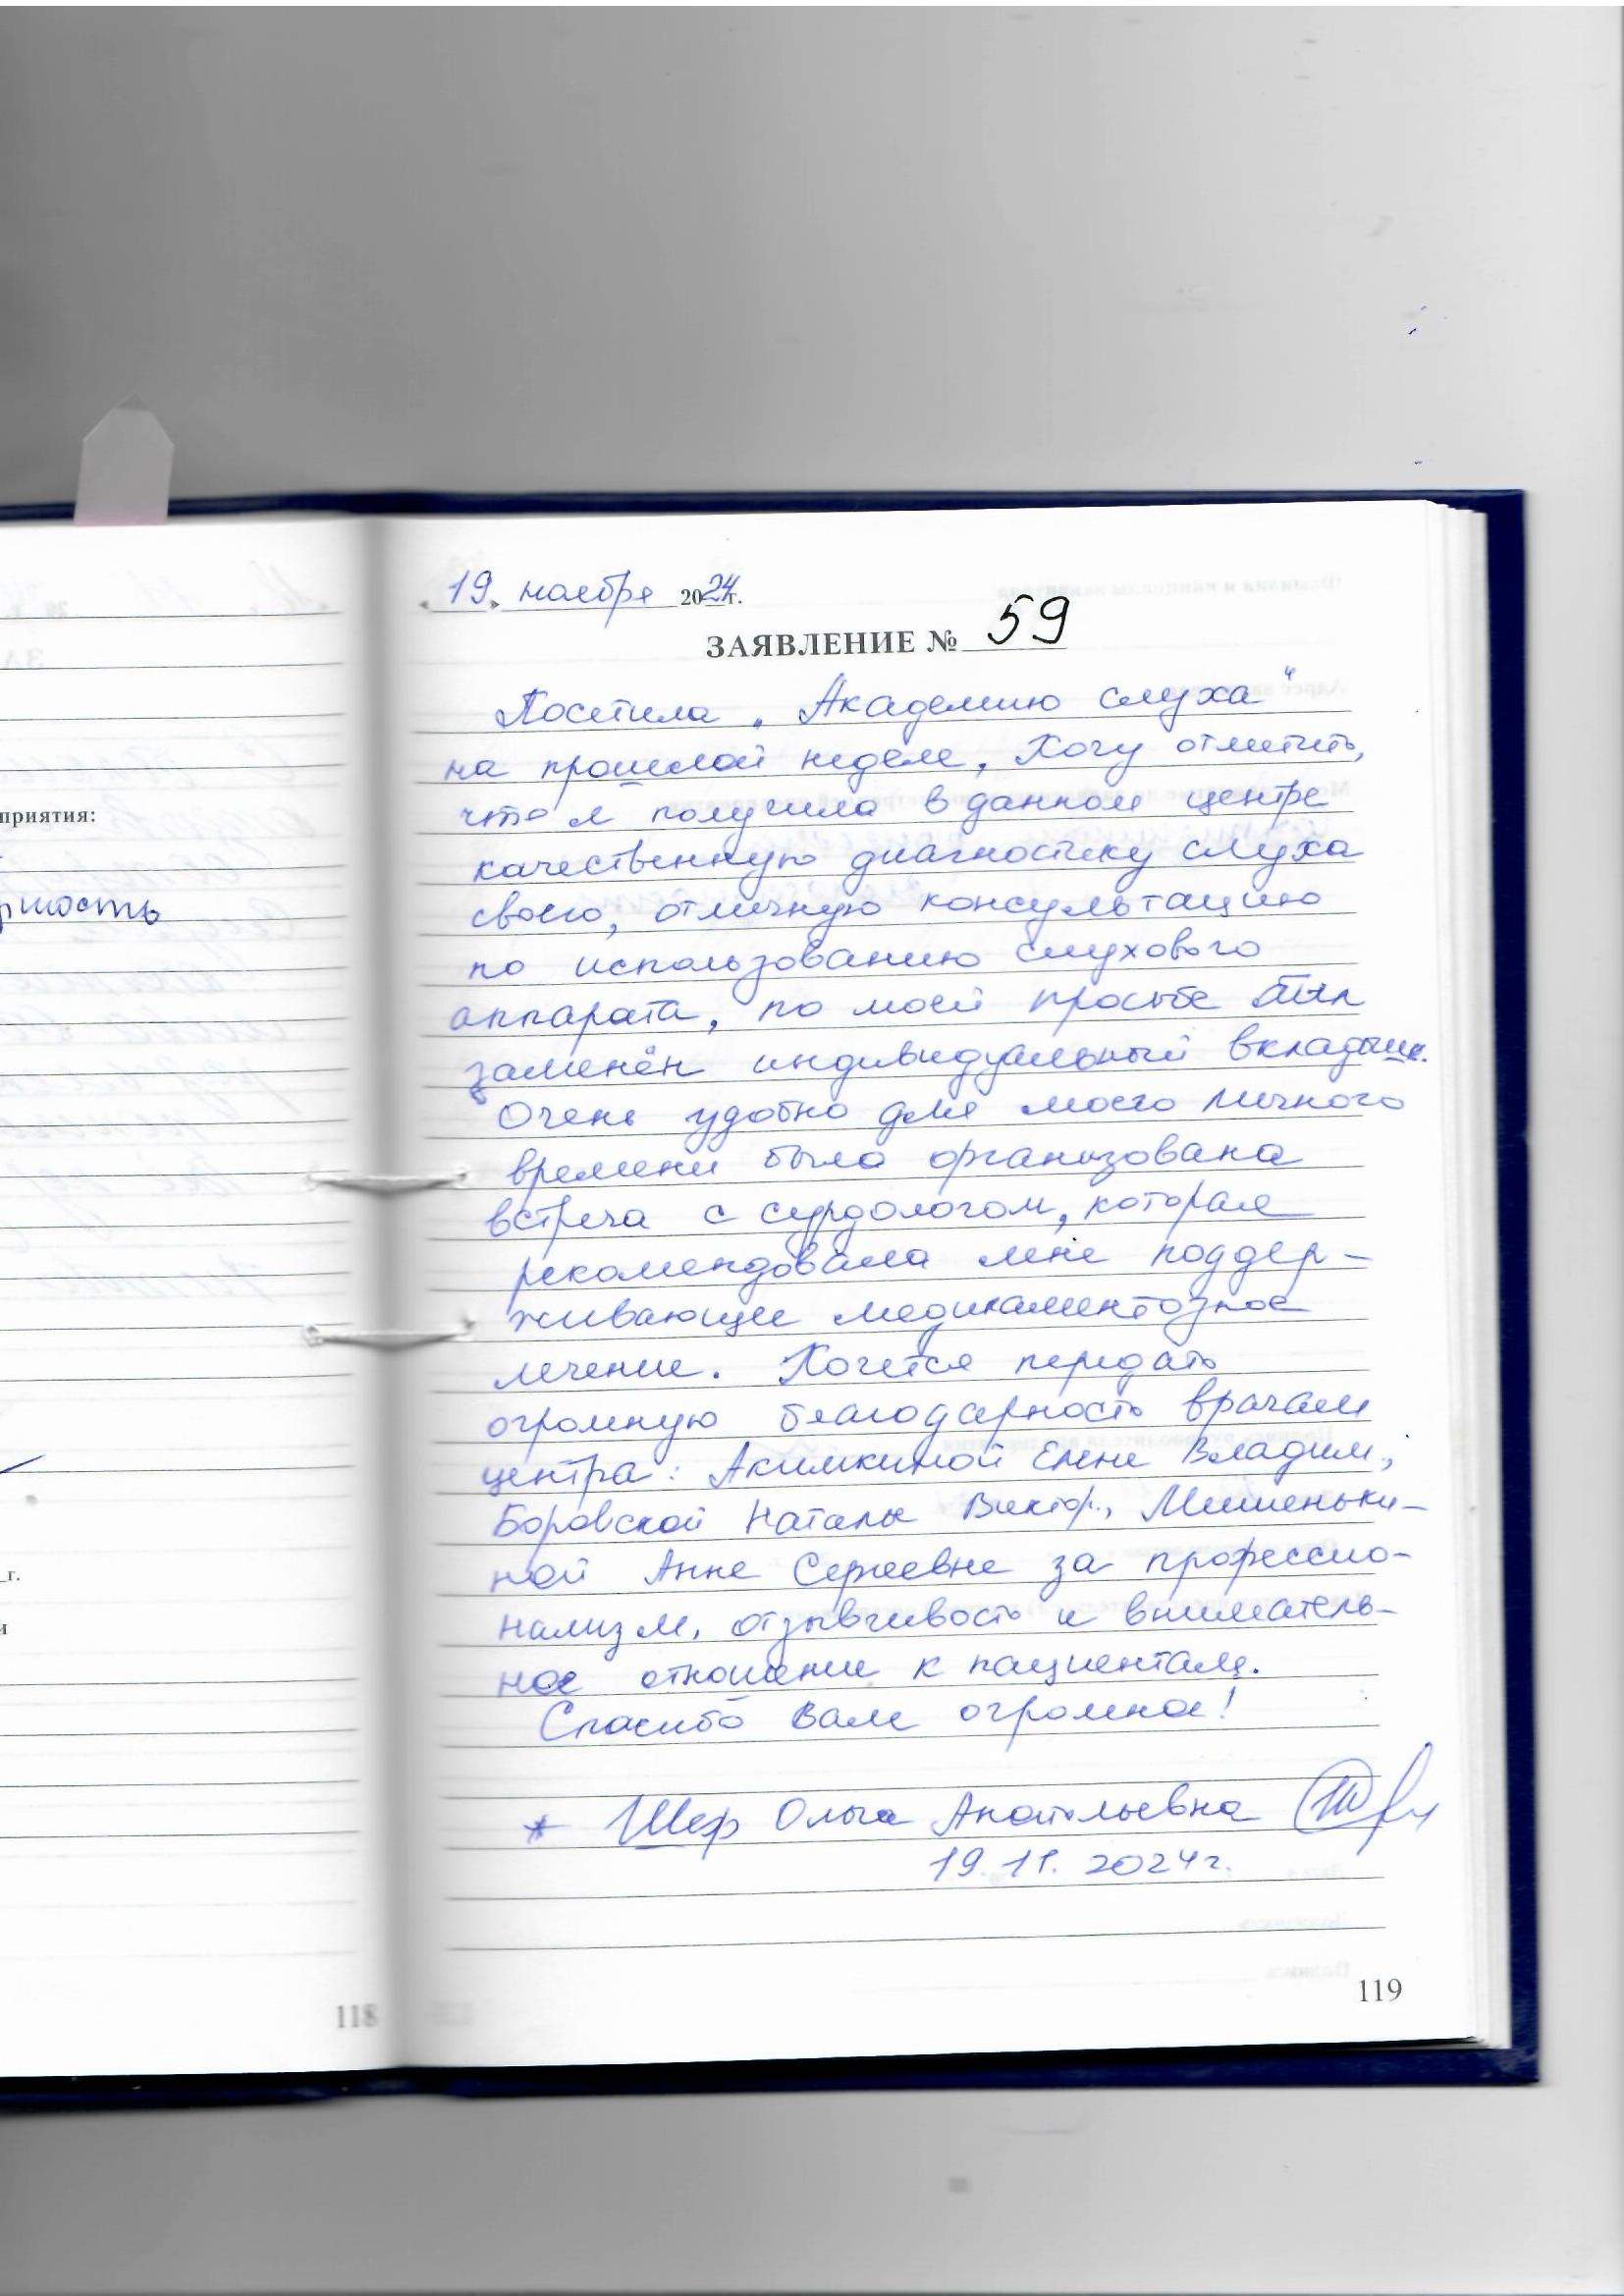 приятия:
рность
г.
118
« 19 » ноября 2024 г.
ЗАЯВЛЕНИЕ № 59
Посетила „Академию слуха“
на прошлой неделе. Хочу отметить,
что я получила в данном центре
качественную диагностику слуха
своего, отличную консультацию
по использованию слухового
аппарата, по моей просьбе был
заменён индивидуальный вкладыш.
Очень удобно для моего личного
времени была организована
встреча с сурдологом, которая
рекомендовала мне поддер-
живающее медикаментозное
лечение. Хочется передать
огромную благодарность врачам
центра: Акимкиной Елене Владим.,
Боровской Наталье Виктор., Мишеньки-
ной Анне Сергеевне за профессио-
нализм, отзывчивость и вниматель-
ное отношение к пациентам.
Спасибо Вам огромное!
* Шер Ольга Анатольевна
19.11.2024г.
119